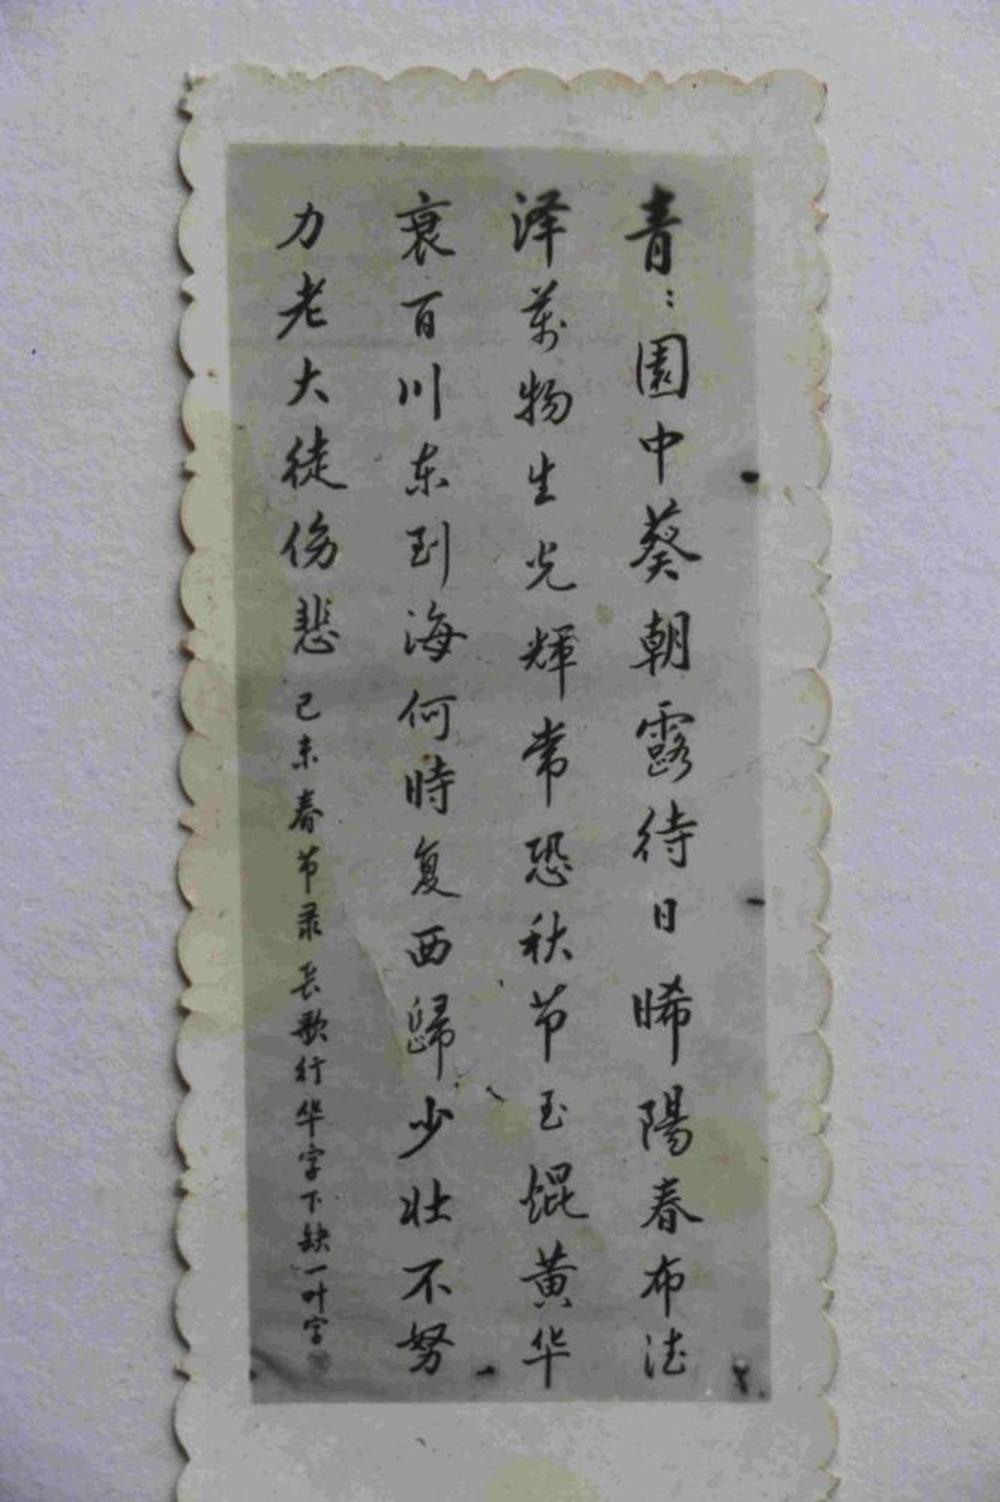 青：園中葵朝露待日晞陽春布德
泽萬物生光輝常恐秋节至焜黄华
衰百川东到海何時复西歸少壮不努
力老大徒伤悲 己未春节录 長歌行华字下缺一叶字